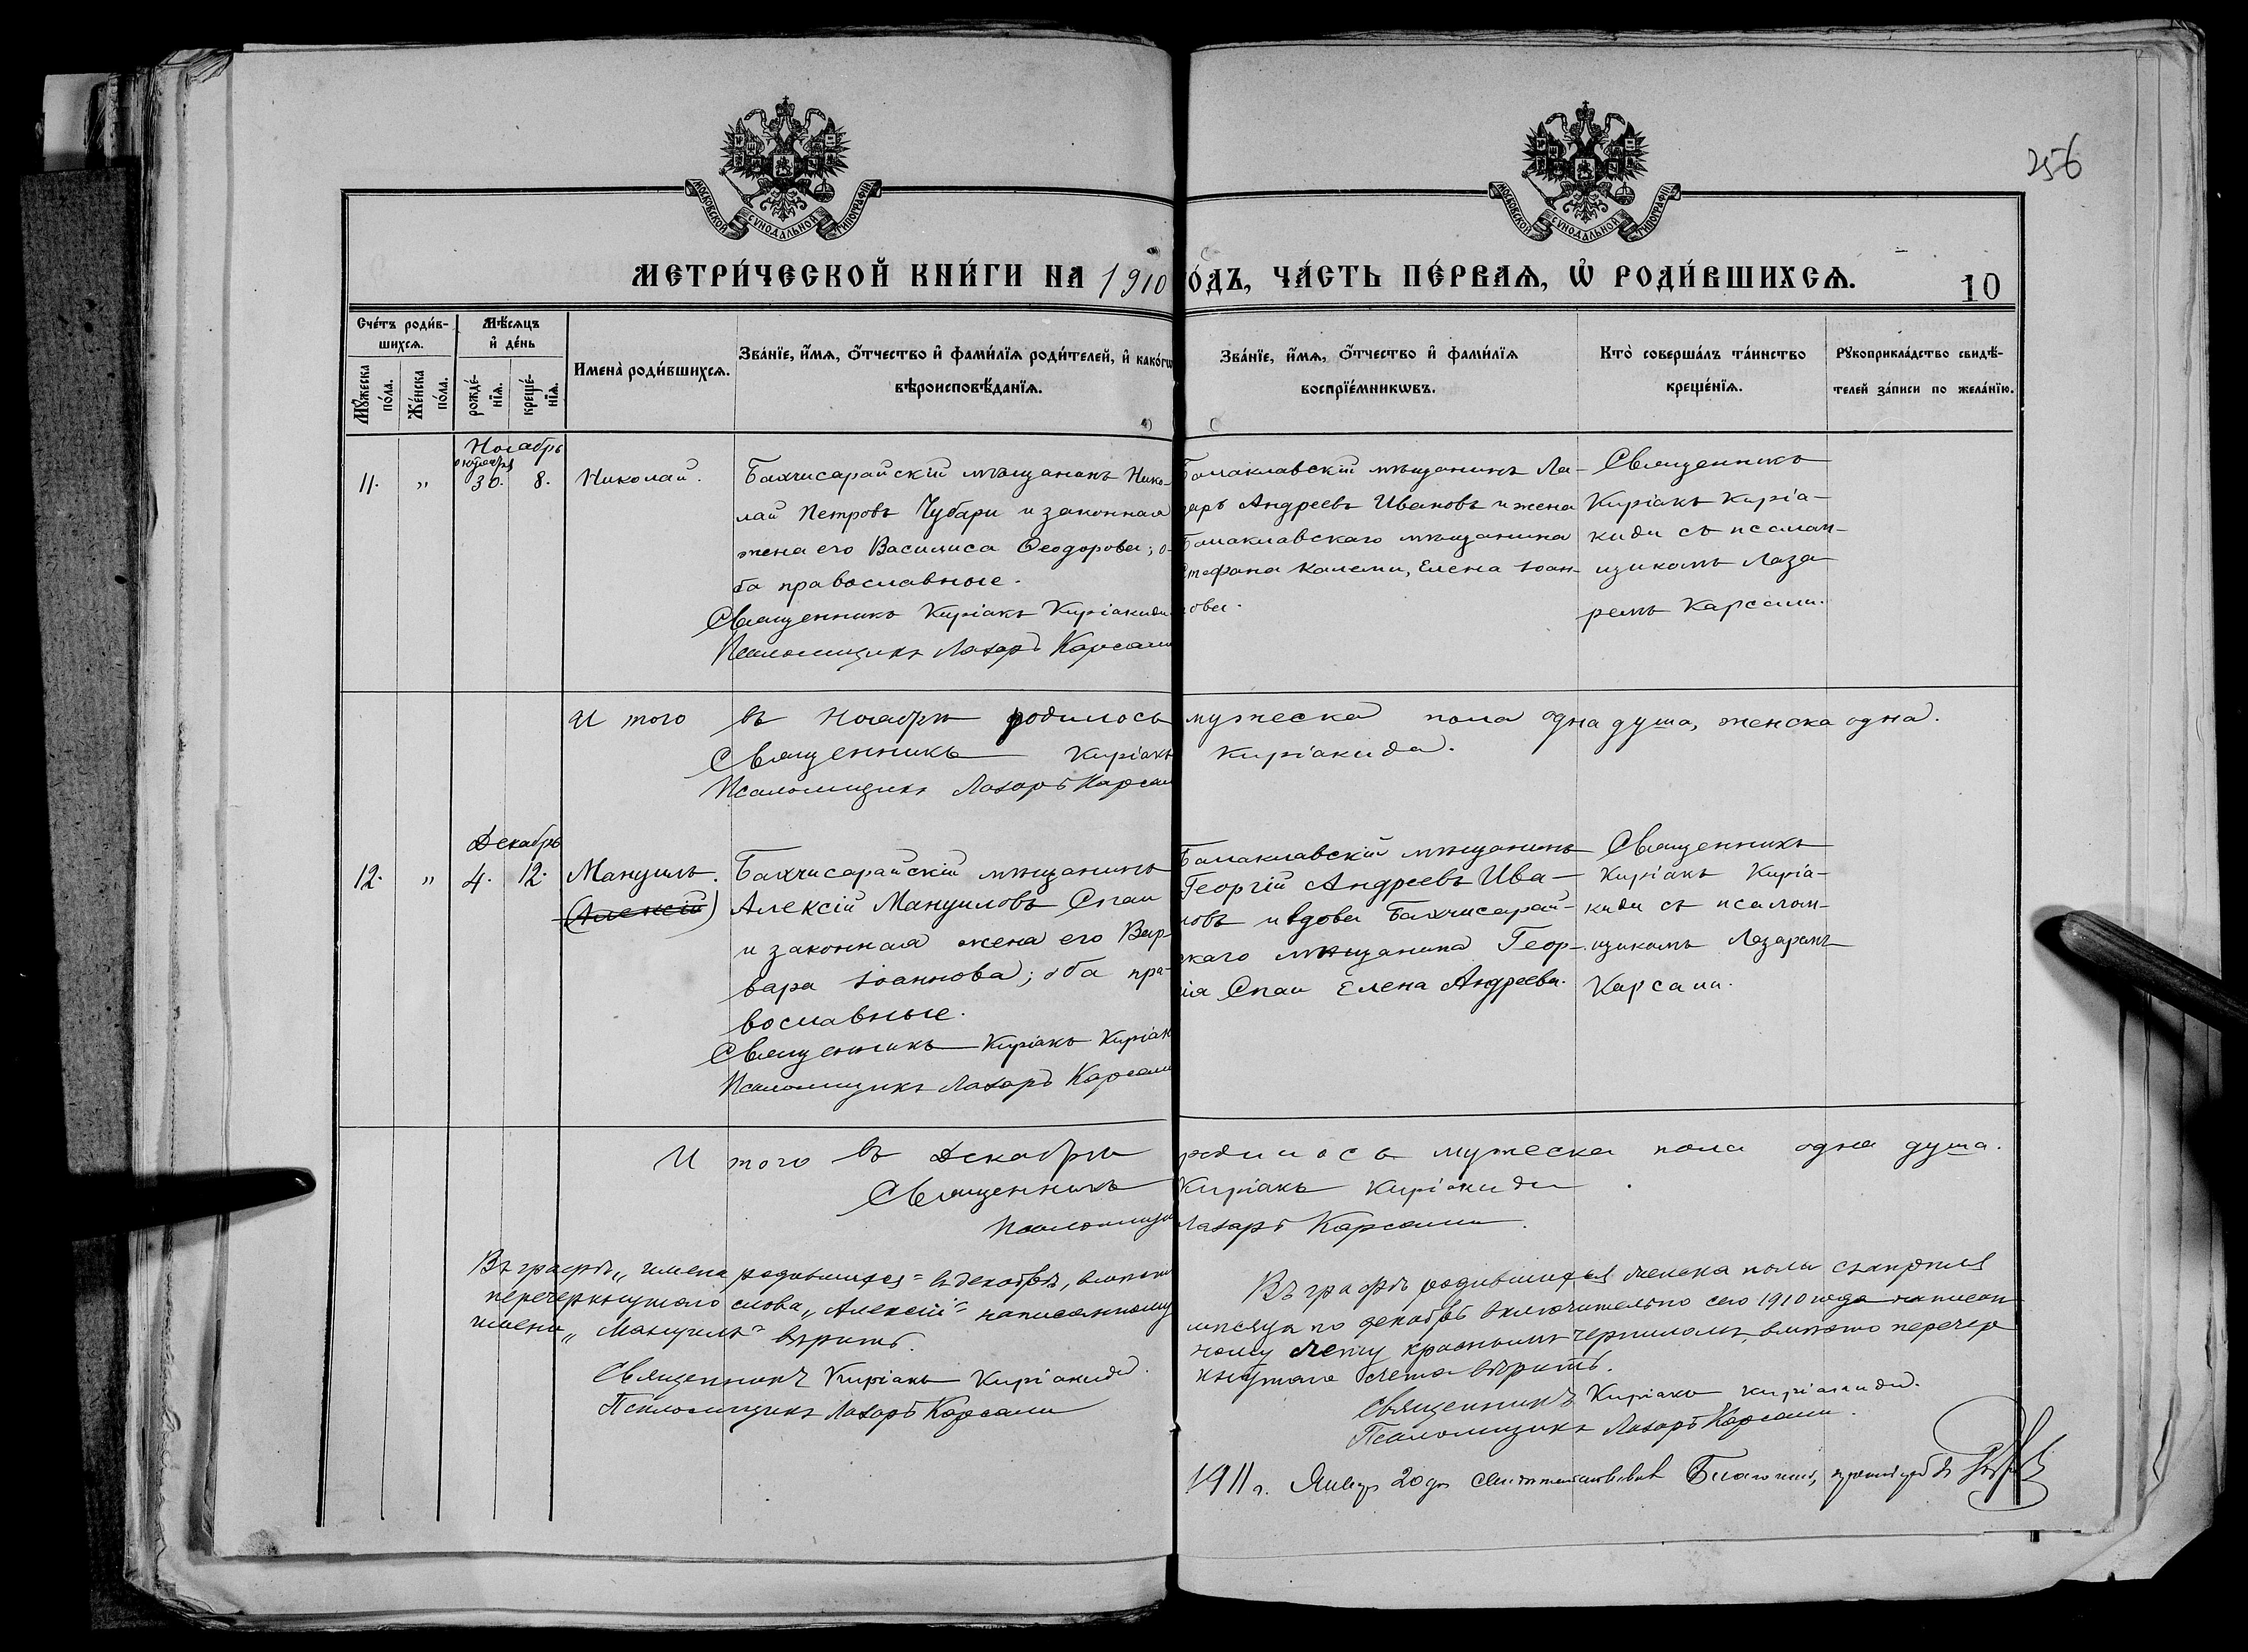 256
МОСКОВСКОЙ СУНОДАЛЬНОЙ ТИПОГРАФІИ
МОСКОВСКОЙ СУНОДАЛЬНОЙ ТИПОГРАФІИ
МЕТРИ́ЧЕСКОЙ КНИ́ГИ НА 1910 ГО́ДЪ, ЧА́СТЬ ПЕ́РВАѦ, Ѡ РОДИ́ВШИХСѦ.
10
Сче́тъ роди́в-
шихсѧ.
Мꙋ́жеска по́ла.
Же́нска по́ла.
Мѣ́сѧцъ
и҆ де́нь
рожде́-
нїѧ.
креще́-
нїѧ.
Имена̀ роди́вшихсѧ.
Зва́нїе, и҆́мѧ, ѻ҆́тчество и҆ фами́лїѧ роди́телей, и҆ како́гѡ
вѣроисповѣ́данїѧ.
Зва́нїе, и҆́мѧ, ѻ҆́тчество и҆ фами́лїѧ
воспрїе́мникѡвъ.
Кто̀ соверша́лъ та́инство
креще́нїѧ.
Рꙋкоприкла́дство свидѣ́-
телей за́писи по жела́нїю.
Ноябрь
октября
11. " 30. 8. Николай.
Бахчисарайскій мѣщанинъ Нико-
лай Петровъ Чубари и законная
жена его Василиса Ѳеодорова; о-
ба православные.
Священникъ Киріакъ Киріакиди
Псаломщикъ Лазарь Карсали
Балаклавскій мѣщанинъ Ла-
зарь Андреевъ Ивановъ и жена
Балаклавскаго мѣщанина
Стефана Калеми, Елена Іоан-
нова.
Священникъ
Киріакъ Киріа-
киди съ псалом-
щикомъ Лаза-
ремъ Карсали.
И того въ Ноябрѣ родилось мужеска пола одна душа, женска одна.
Священникъ Киріакъ Киріакиди.
Псаломщикъ Лазарь Карсали
Декабрь
12. " 4. 12. Мануилъ.
(Алексій)
Бахчисарайскій мѣщанинъ
Алексій Мануиловъ Спаи
и законная жена его Вар-
вара Іоаннова; оба пра-
вославные.
Священникъ Киріакъ Киріак
Псаломщикъ Лазарь Карсали
Балаклавскій мѣщанинъ
Георгій Андреевъ Ива-
новъ и вдова Бахчисарай-
скаго мѣщанина Геор-
гія Спаи Елена Андреева.
Священникъ
Киріакъ Киріа-
киди съ псалом-
щикомъ Лазаремъ
Карсали.
И того въ Декабрѣ родилось мужеска пола одна душа.
Священникъ Киріакъ Киріакиди.
Псаломщи Лазарь Карсали.
Въ графѣ „имена родившихся" въ декабрѣ, вмѣсто
перечеркнутаго слова „Алексій" написанному
имени „Мануилъ" вѣрить.
Священникъ Киріакъ Киріакиди.
Псаломщикъ Лазарь Карсали
Въ графѣ родившихся женска пола съ апрѣля
мѣсяца по декабрь включительно сего 1910 года написан-
ному счету красными чернилами, вмѣсто перечер-
кнутаго счета вѣрить.
Священникъ Киріакъ Киріакиди.
Псаломщикъ Лазарь Карсали.
1911 г. Январ 20 дн свидѣтельствовалъ Благочин,